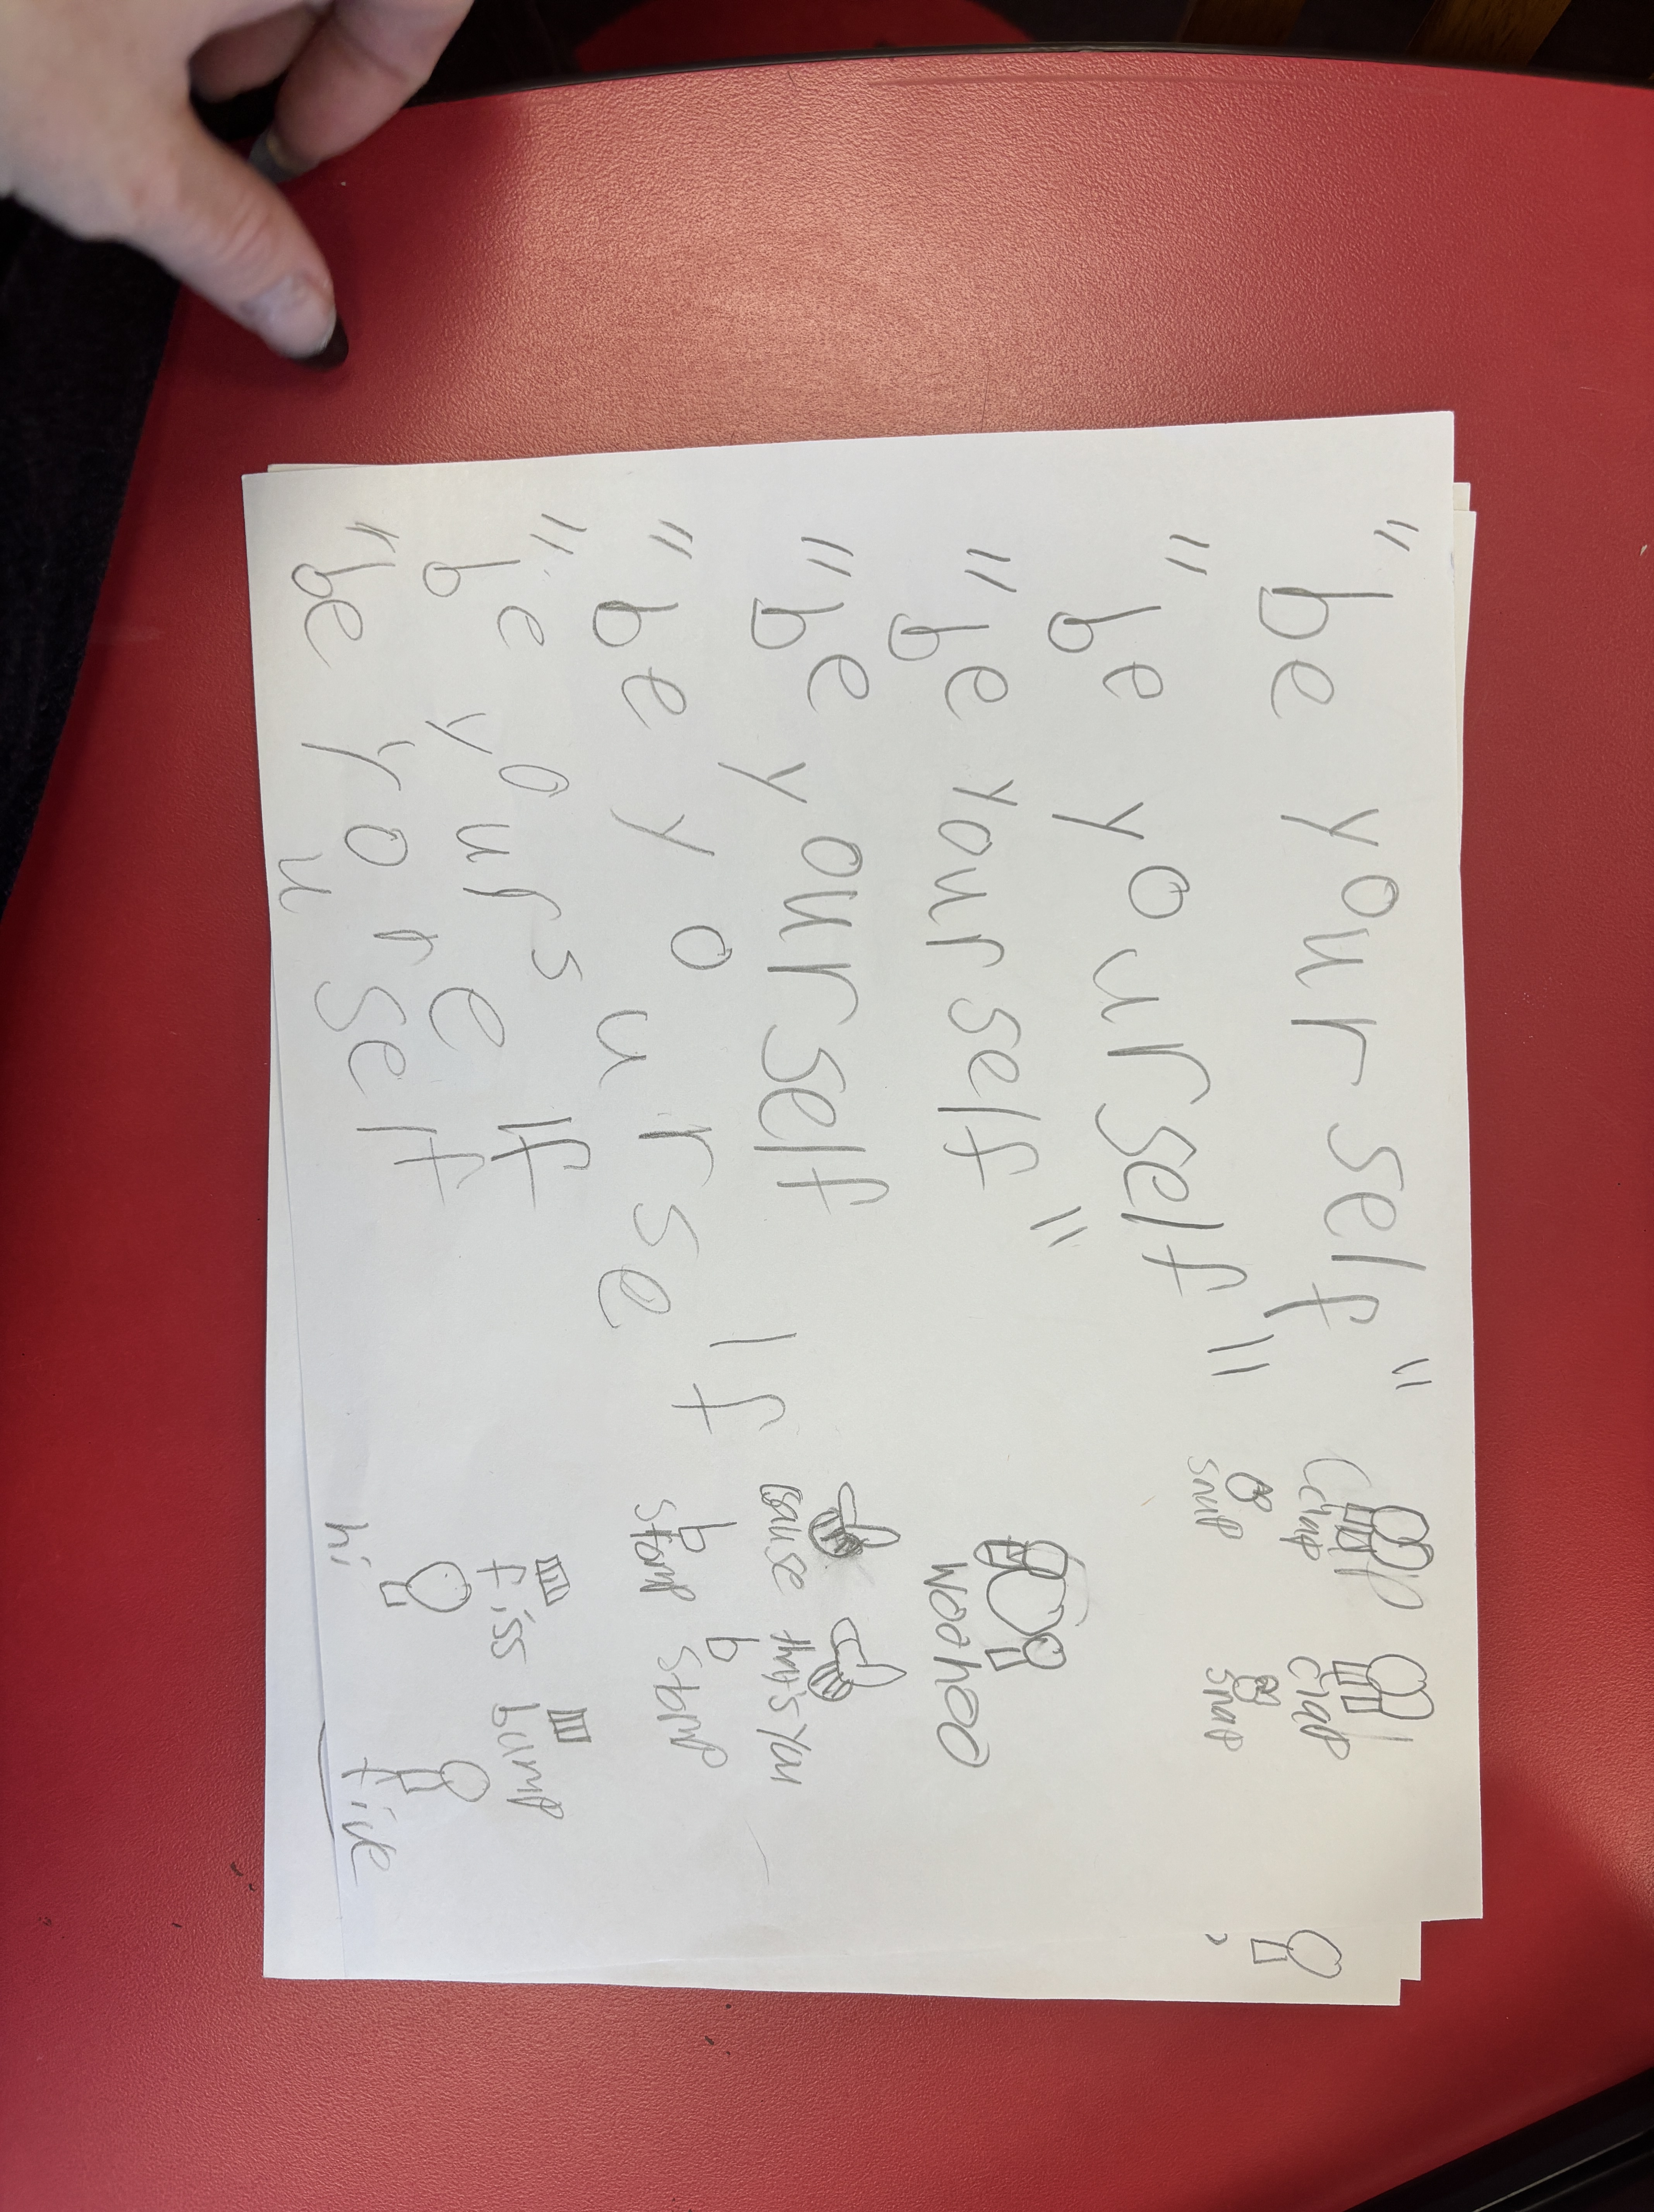 "be yourself" Clap Clap
"be yourself" snap snap
"be yourself" Woohoo
"be yourself cause that's you
"be yourself stomp stomp
"be yourself fiss bump
"be yourself hi five